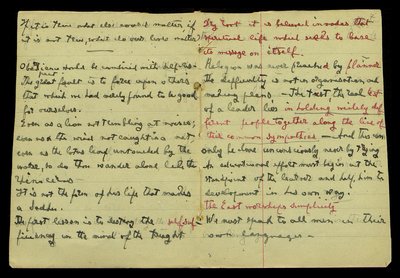 If it is true what else would matter, if
it is not true, what else ever does matter
Obedience would be combined with self-
The great fault is to force upon others
just
that which we had early found to be good
for ourselves.
Even as a lion not trembling at noises,
even as the wind not caught in a net,
even as the lotus leaf untouched by the
water, so do thou wander alone like the
rhinoceros
It is not the form of his life that makes
a
The first lesson is to destroy the self-suf-
ficiency in the mind of the taught
Dry Root it is believed invades that
spiritual life which seeks to base
its message on itself.
Religion was never preached by planned
The difficulty is not in organisation and
making plans. — The test the real test
of a leader lies in holding widely dif
ferent people together along the line of
their common sympathies — And this can
only be done unconsciously never by trying
An educational effort must begin at the
standpoint of the learner and help him to
development in his own way.
The East worships simplicity
We must speak to all men in their
own languages —